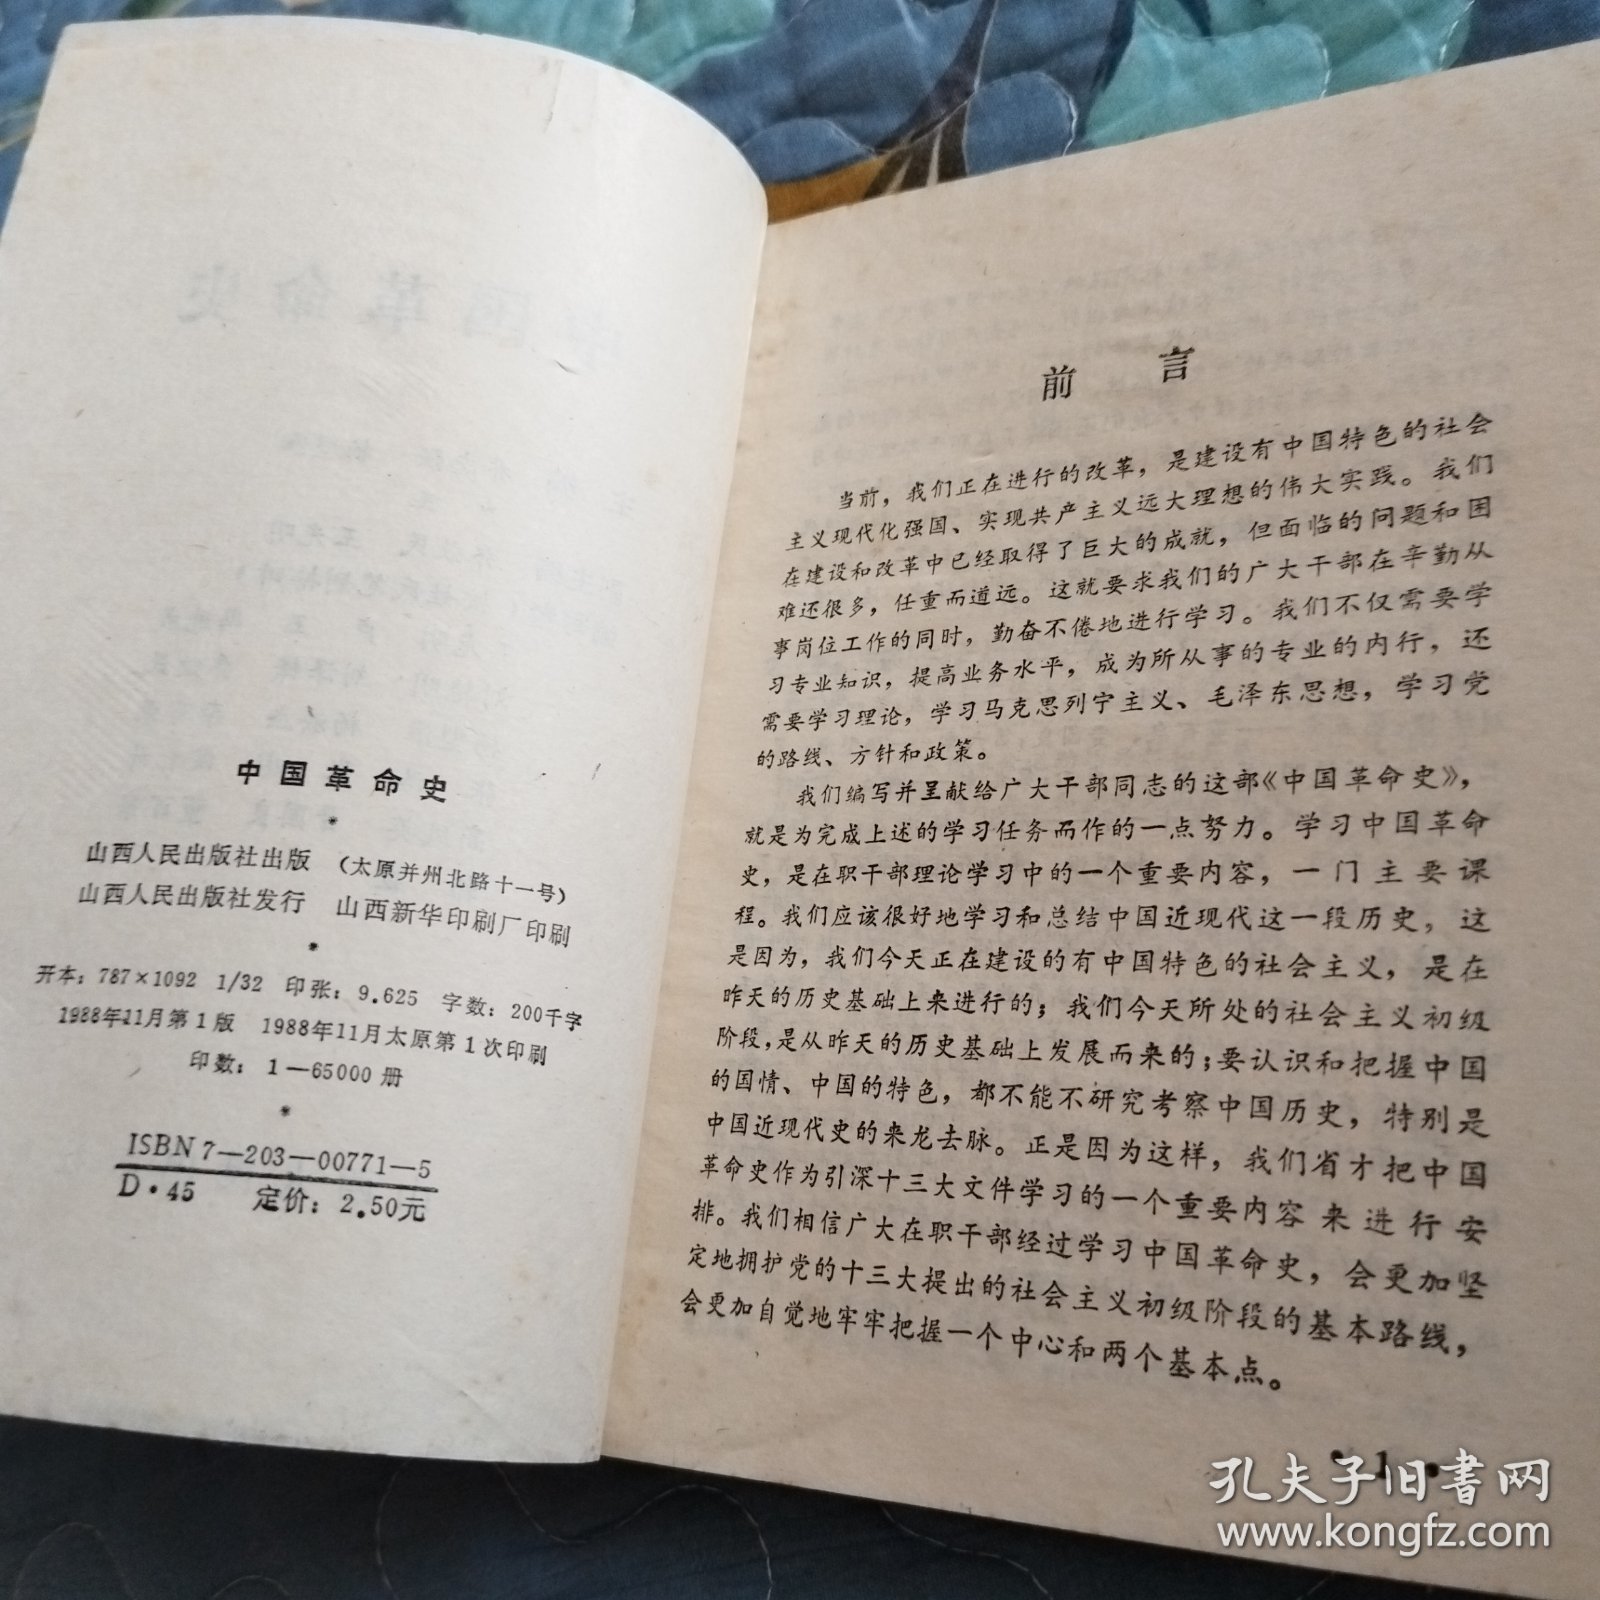 中国革命史
*
山西人民出版社出版 （太原并州北路十一号）
山西人民出版社发行 山西新华印刷厂印刷
*
开本：787×1092 1/32 印张：9.625 字数：200千字
1988年11月第1版 1988年11月太原第1次印刷
印数：1—65000册
*
ISBN 7—203—00771—5
D·45 定价：2.50元
前言
当前，我们正在进行的改革，是建设有中国特色的社会
主义现代化强国、实现共产主义远大理想的伟大实践。我们
在建设和改革中已经取得了巨大的成就，但面临的问题和困
难还很多，任重而道远。这就要求我们的广大干部在辛勤从
事岗位工作的同时，勤奋不倦地进行学习。我们不仅需要学
习专业知识，提高业务水平，成为所从事的专业的内行，还
需要学习理论，学习马克思列宁主义、毛泽东思想，学习党
的路线、方针和政策。
我们编写并呈献给广大干部同志的这部《中国革命史》，
就是为完成上述的学习任务而作的一点努力。学习中国革命
史，是在职干部理论学习中的一个重要内容，一门主要课
程。我们应该很好地学习和总结中国近现代这一段历史，这
是因为，我们今天正在建设的有中国特色的社会主义，是在
昨天的历史基础上来进行的；我们今天所处的社会主义初级
阶段，是从昨天的历史基础上发展而来的；要认识和把握中国
的国情、中国的特色，都不能不研究考察中国历史，特别是
中国近现代史的来龙去脉。正是因为这样，我们省才把中国
革命史作为引深十三大文件学习的一个重要内容来进行安
排。我们相信广大在职干部经过学习中国革命史，会更加坚
定地拥护党的十三大提出的社会主义初级阶段的基本路线，
会更加自觉地牢牢把握一个中心和两个基本点。
• 1 •
孔夫子旧书网
www.kongfz.com